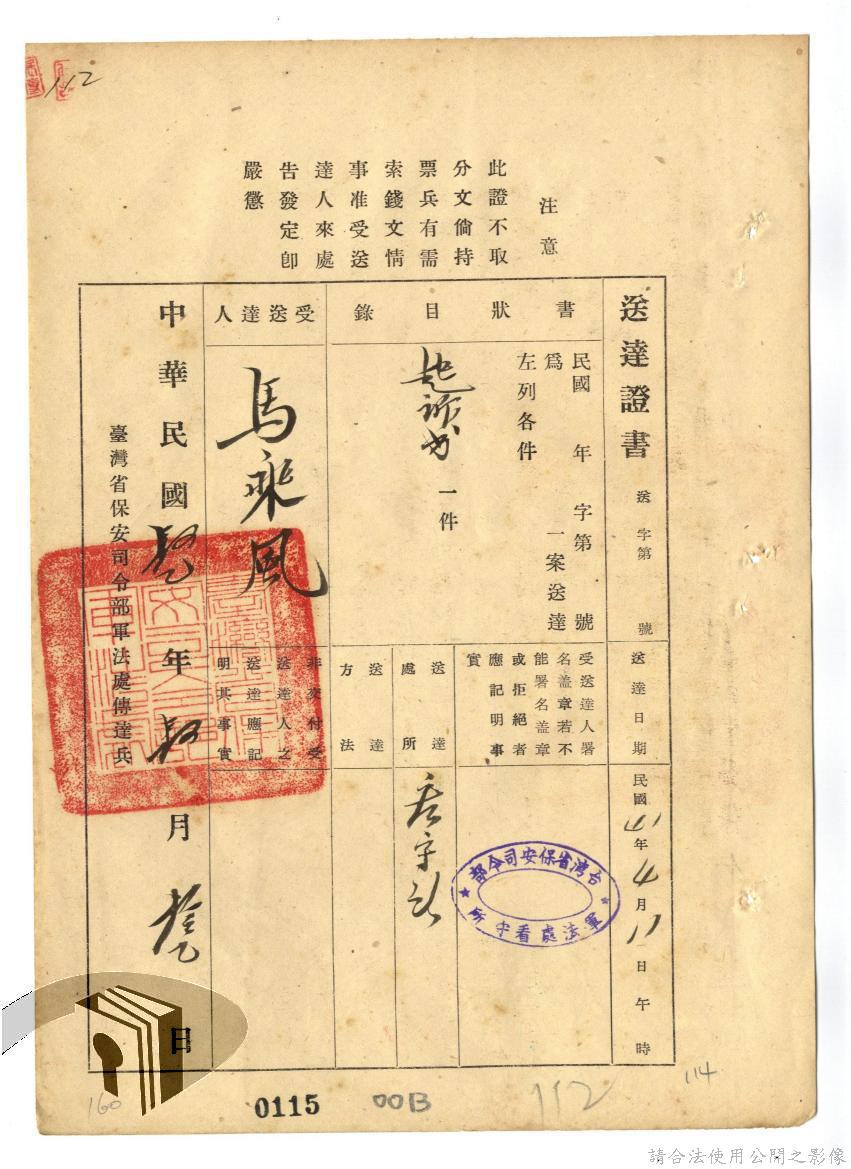 112
注意
此證不取
分文倘持
票兵有需
索錢文情
事准受送
達人來處
告發定卽
嚴懲
送達證書 送 字第 號
送達日期
民國41年4月11日午時
書狀目錄
民國 年 字第 號
爲 一案送達
左列各件
起訴書一件
受送達人署
名盖章若不
能署名盖章
或拒絕者
應記明事
實
台灣省保安司令部
軍法處看守所
送達處所
看守所
送達方法
受送達人
馬乘風
非交付受
送達人之
送達應記
明其事實
中華民國 年 月 日
臺灣省保安司令部軍法處傳達兵
160
0115
00B
112
114
請合法使用公開之影像